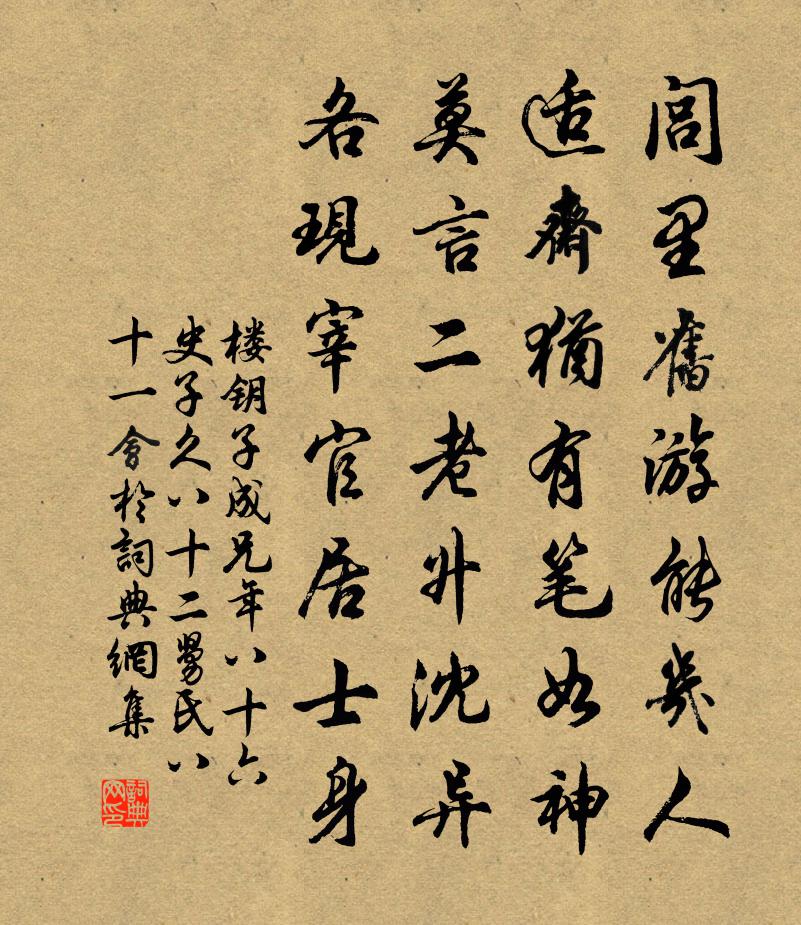 闾里舊游能幾人
适齋猶有笔如神
莫言二老升沈异
各現宰官居士身
楼钥子成兄年八十六
史子久八十二
民八
十一會於詞典網集
詞典网印